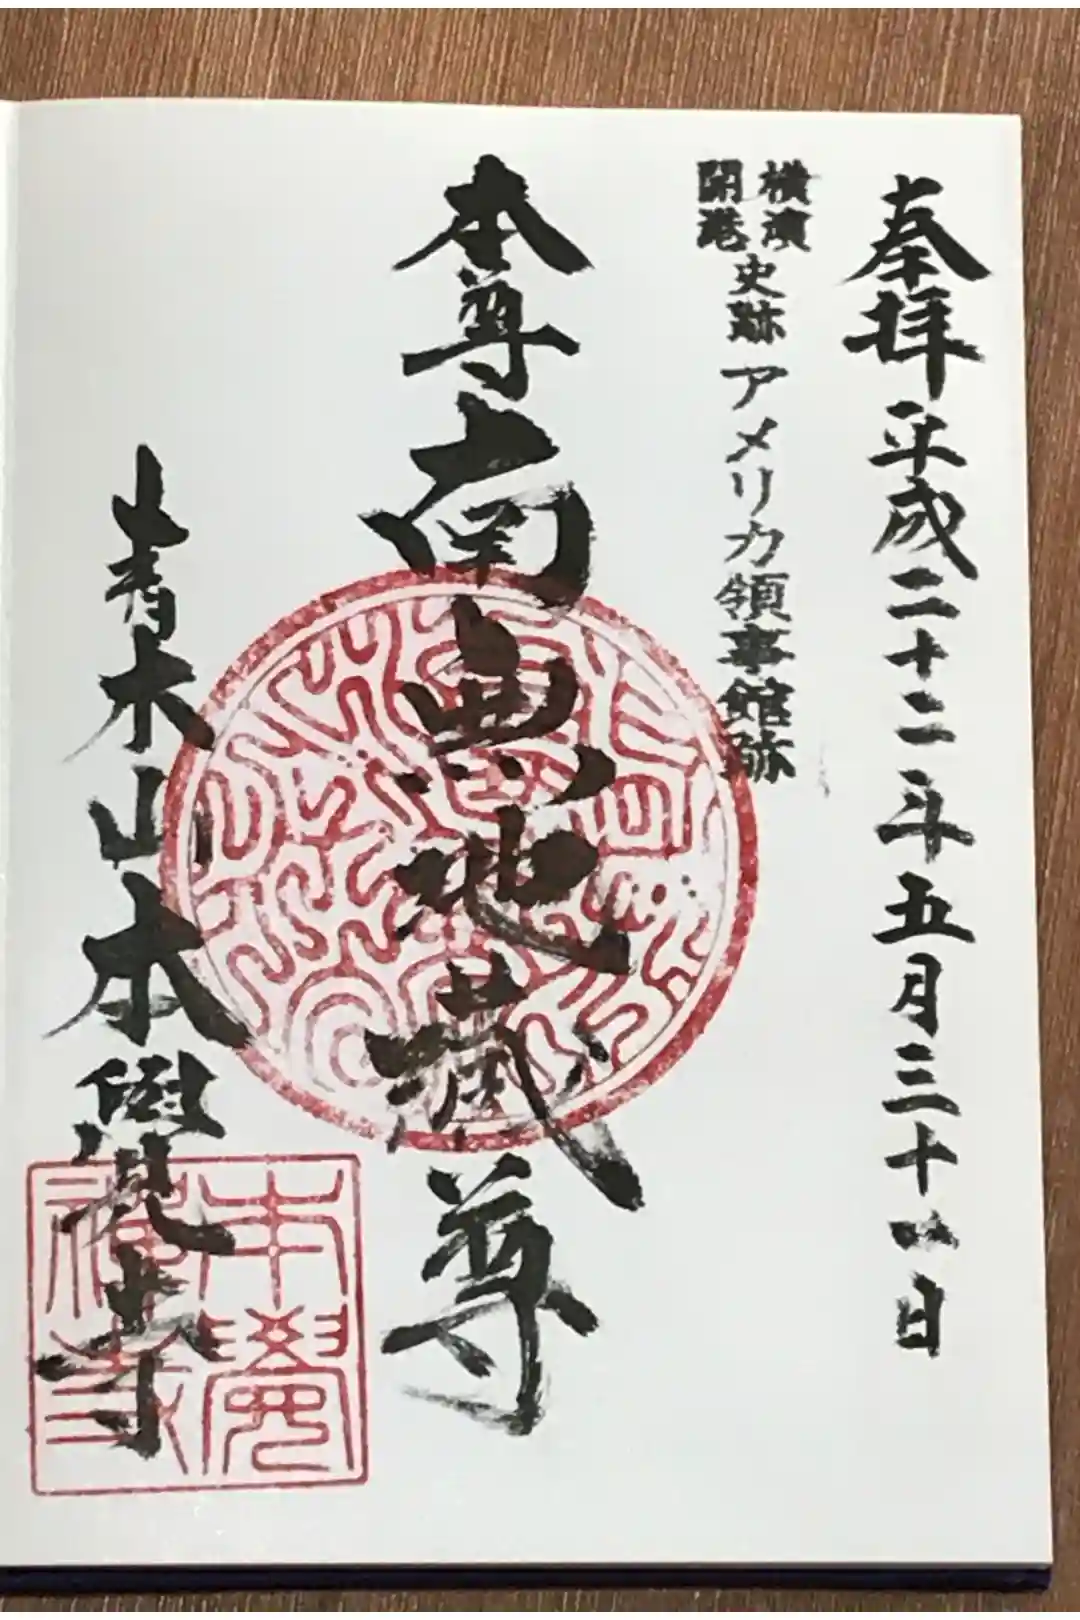 奉拝 平成二十二年五月三十一日
横濱
開港
史跡アメリカ領事館跡
本尊 南無地蔵尊
青木山本覺寺
本覺
禪寺